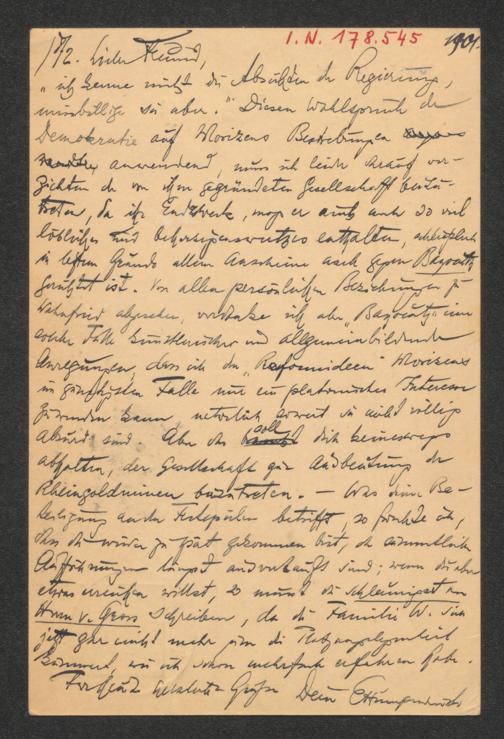 I.N. 178.545
1901.
17/2. Lieber Freund,
"ich kenne nicht die Absichten der Regierung,
missbillige sie aber." Diesen Wahlspruch der
Demokratie auf Morizens Bestrebungen
anwendend, muss ich leider darauf ver-
zichten der von ihm gegründeten Gesellschaft beizu-
treten, da ihr Endzweck, mag er auch noch so viel
löbliches und beherzigenswertes enthalten,
im letzten Grunde allem Anscheine nach gegen Bayreuth
gerichtet ist. Von allen persönlichen Beziehungen zu
Wahnfried abgesehen, verdanke ich aber "Bayreuth" eine
solche Fülle künstlerischer und allgemein bildender
Anregungen, dass ich den "Reformideen" Morizens
im günstigsten Falle nur ein platonisches Interesse
zuwenden kann, natürlich soweit sie nicht völlig
absurd sind. Aber das soll dich keineswegs
abhalten, der Gesellschaft zur Ausbeutung der
Rheingoldminen beizutreten. — Was deine Be-
teiligung an den Festspielen betrifft, so fürchte ich,
dass du wieder zu spät gekommen bist, da sämmtliche
Aufführungen längst ausverkauft sind; wenn du aber
etwas erreichen willst, so musst du schleunigst an
Herrn v. Gross schreiben, da die Familie W. sich
jetzt gar nicht mehr um die Platzangelegenheit
kümmert, wie ich schon mehrfach erfahren habe.
Grüsse Dein EHumperdinck